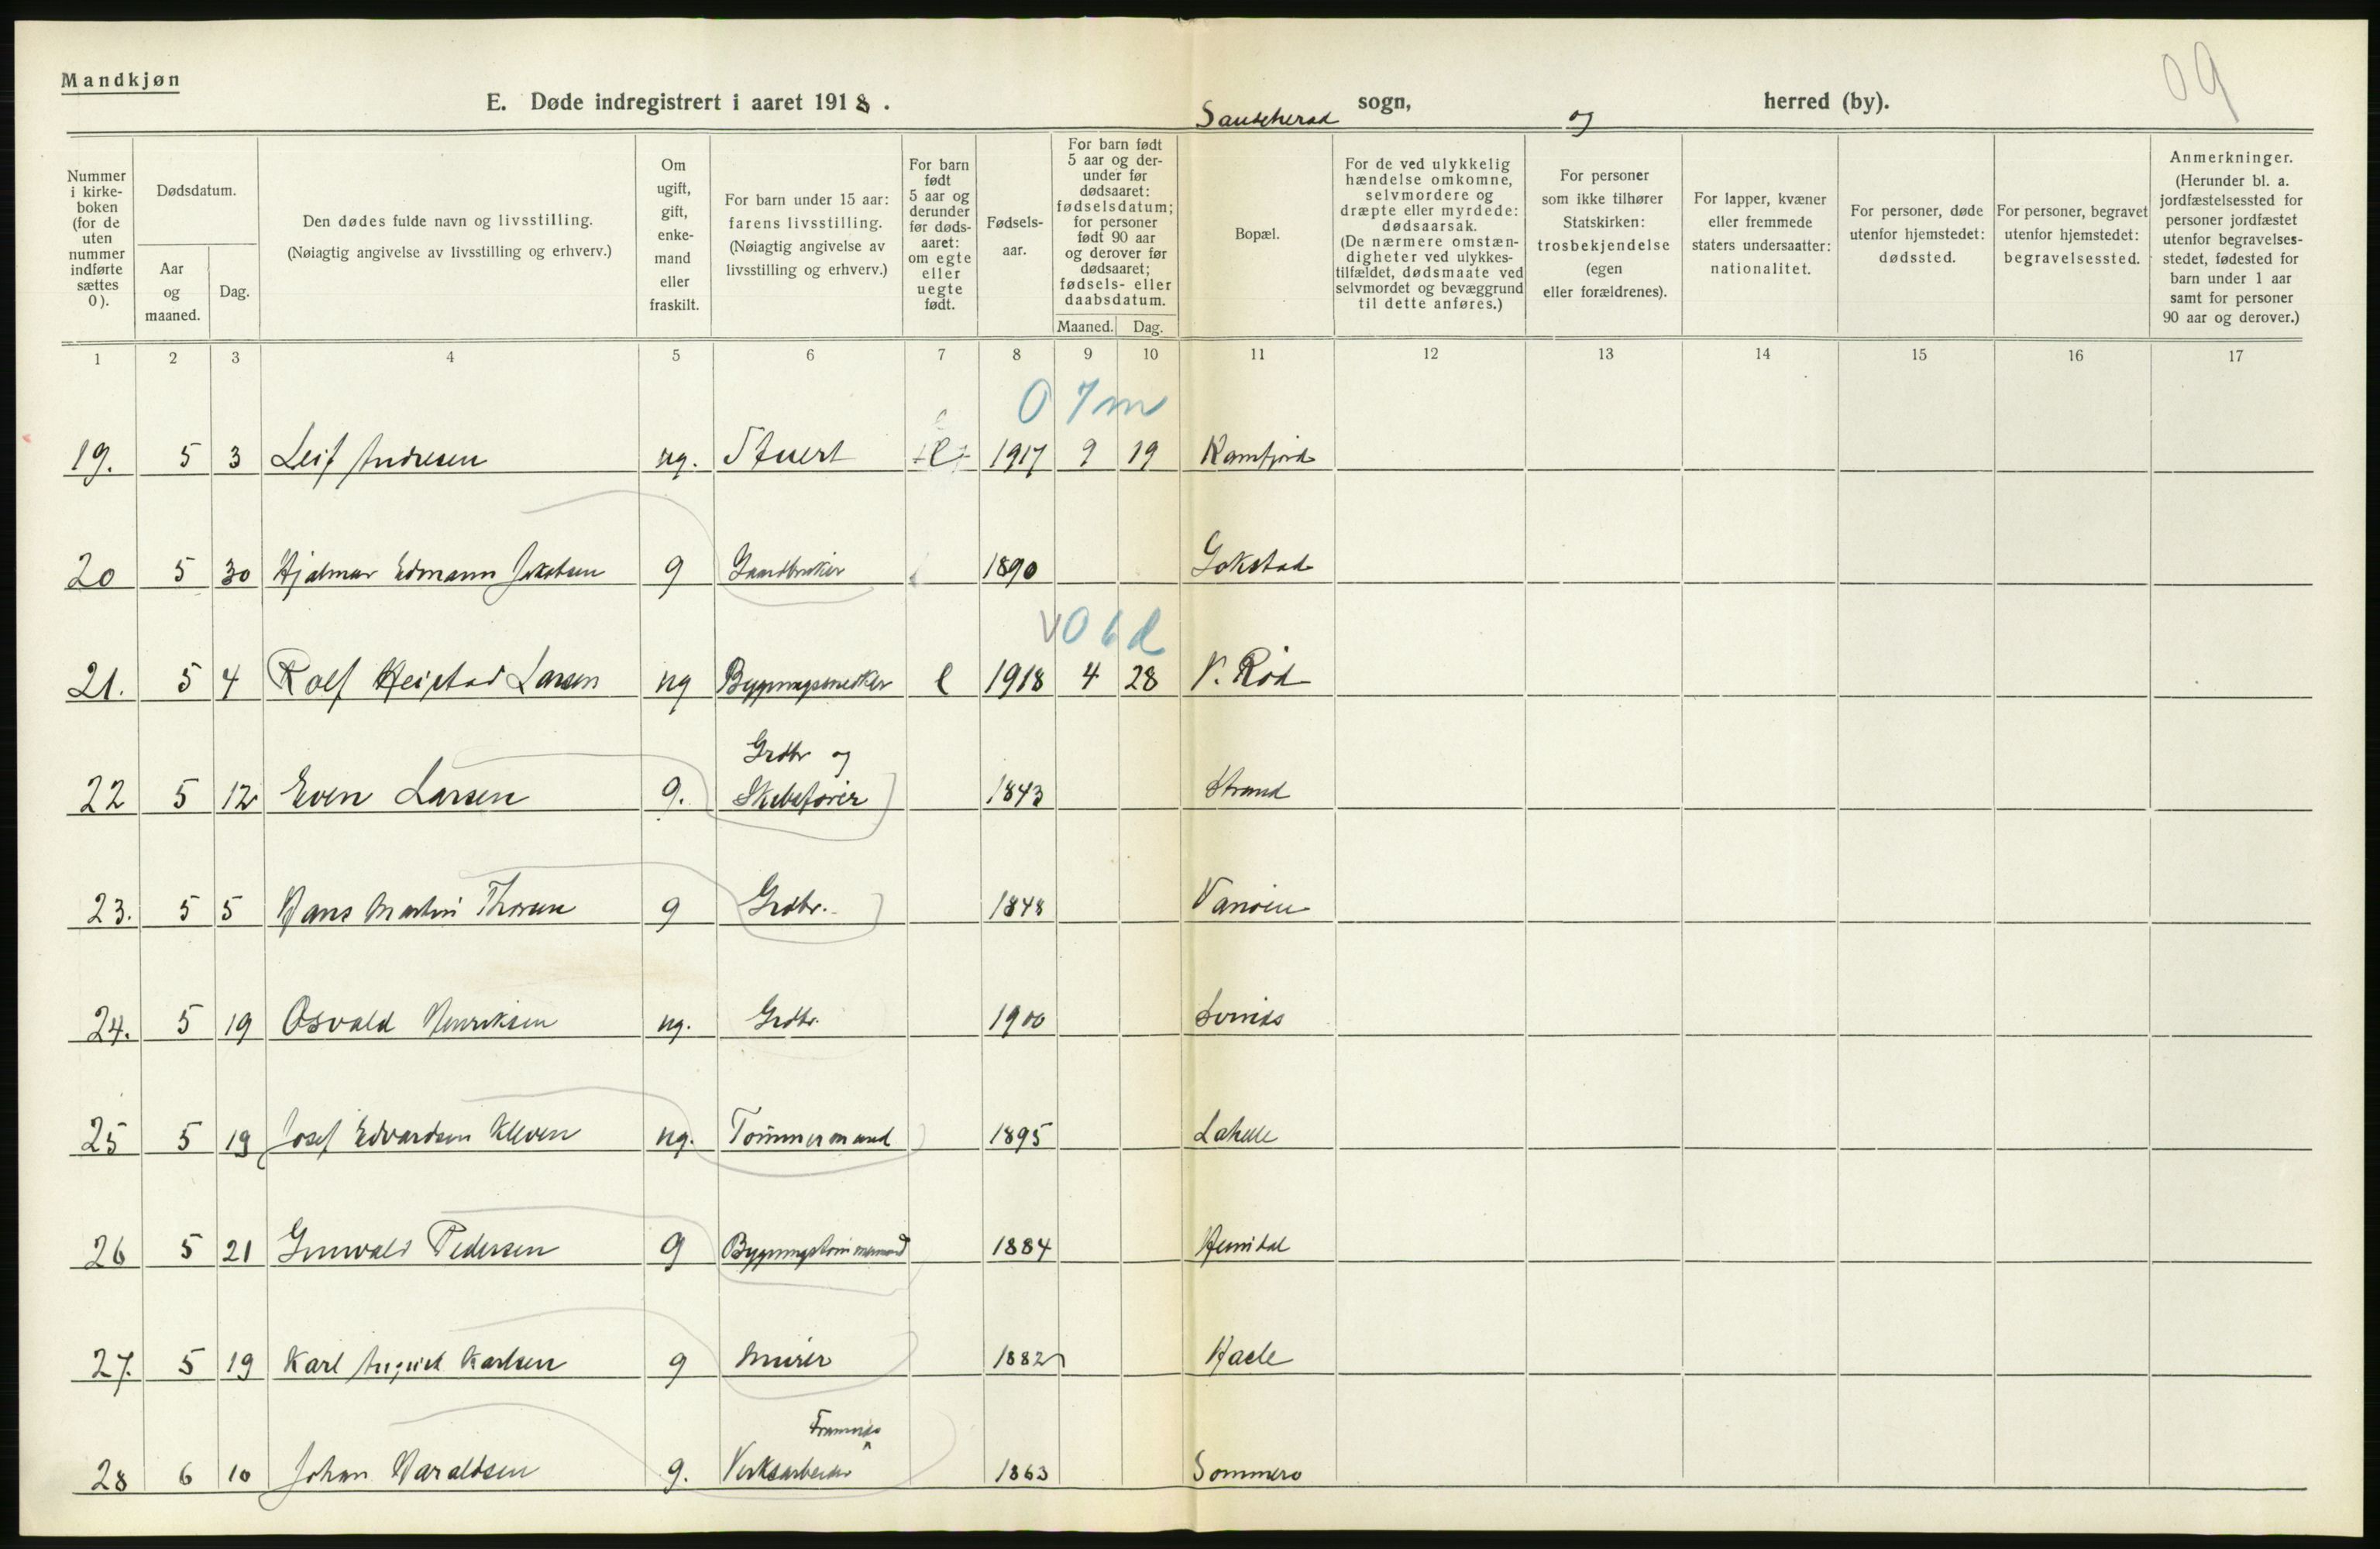 Mandkjøn
E. Døde indregistrert i aaret 1918.
Sandeherad sogn, og herred (by).
09
Nummer i kirkeboken (for de uten nummer indførte sættes 0).
Dødsdatum.
Aar og maaned.
Dag.
Den dødes fulde navn og livsstilling.
(Nøiagtig angivelse av livsstilling og erhverv.)
Om ugift, gift, enkemand eller fraskilt.
For barn under 15 aar: farens livsstilling.
(Nøiagtig angivelse av livsstilling og erhverv.)
For barn født 5 aar og derunder før dødsaaret: om egte eller uegte født.
Fødselsaar.
For barn født 5 aar og derunder før dødsaaret: fødselsdatum; for personer født 90 aar og derover før dødsaaret; fødsels- eller daabsdatum.
Maaned. Dag.
Bopæl.
For de ved ulykkelig hændelse omkomne, selvmordere og dræpte eller myrdede: dødsaarsak.
(De nærmere omstændigheter ved ulykkestilfældet, dødsmaate ved selvmordet og bevæggrund til dette anføres.)
For personer som ikke tilhører Statskirken: trosbekjendelse (egen eller forældrenes).
For lapper, kvæner eller fremmede staters undersaatter: nationalitet.
For personer, døde utenfor hjemstedet: dødssted.
For personer, begravet utenfor hjemstedet: begravelsessted.
Anmerkninger.
(Herunder bl. a. jordfæstelsessted for personer jordfæstet utenfor begravelsesstedet, fødested for barn under 1 aar samt for personer 90 aar og derover.)
1 2 3 4 5 6 7 8 9 10 11 12 13 14 15 16 17
0 7 m
19. 5 3 Leif Andresen ug. Stuert e 1917 9 19 Kamfjord
20 5 30 Hjalmar Edmann Jakobsen g Gaardbruker 1890 Gokstad
V 0 6 d
21. 5 4 Rolf Heistad Larsen ug Bygningssnedker e 1918 4 28 V. Rød
Grdbr og
22 5 12 Even Larsen g. Skibsfører 1843 Strand
23. 5 5 Hans Martin Thorsen g Grdbr. 1848
24. 5 19 Osvald Henriksen ug. Grdbr. 1900
25 5 19 Josef Edvardsen Kleven ug. Tømmermand 1895 Lahelle
26 5 21 Gunvald Pedersen g Bygningstømmermand 1884 Hemidal
27. 5 19 Karl August Karlsen g Murer 1882 Hasle
Framnes
28 6 10 Johan Haraldsen g. Verksarbeider 1863 Sommero